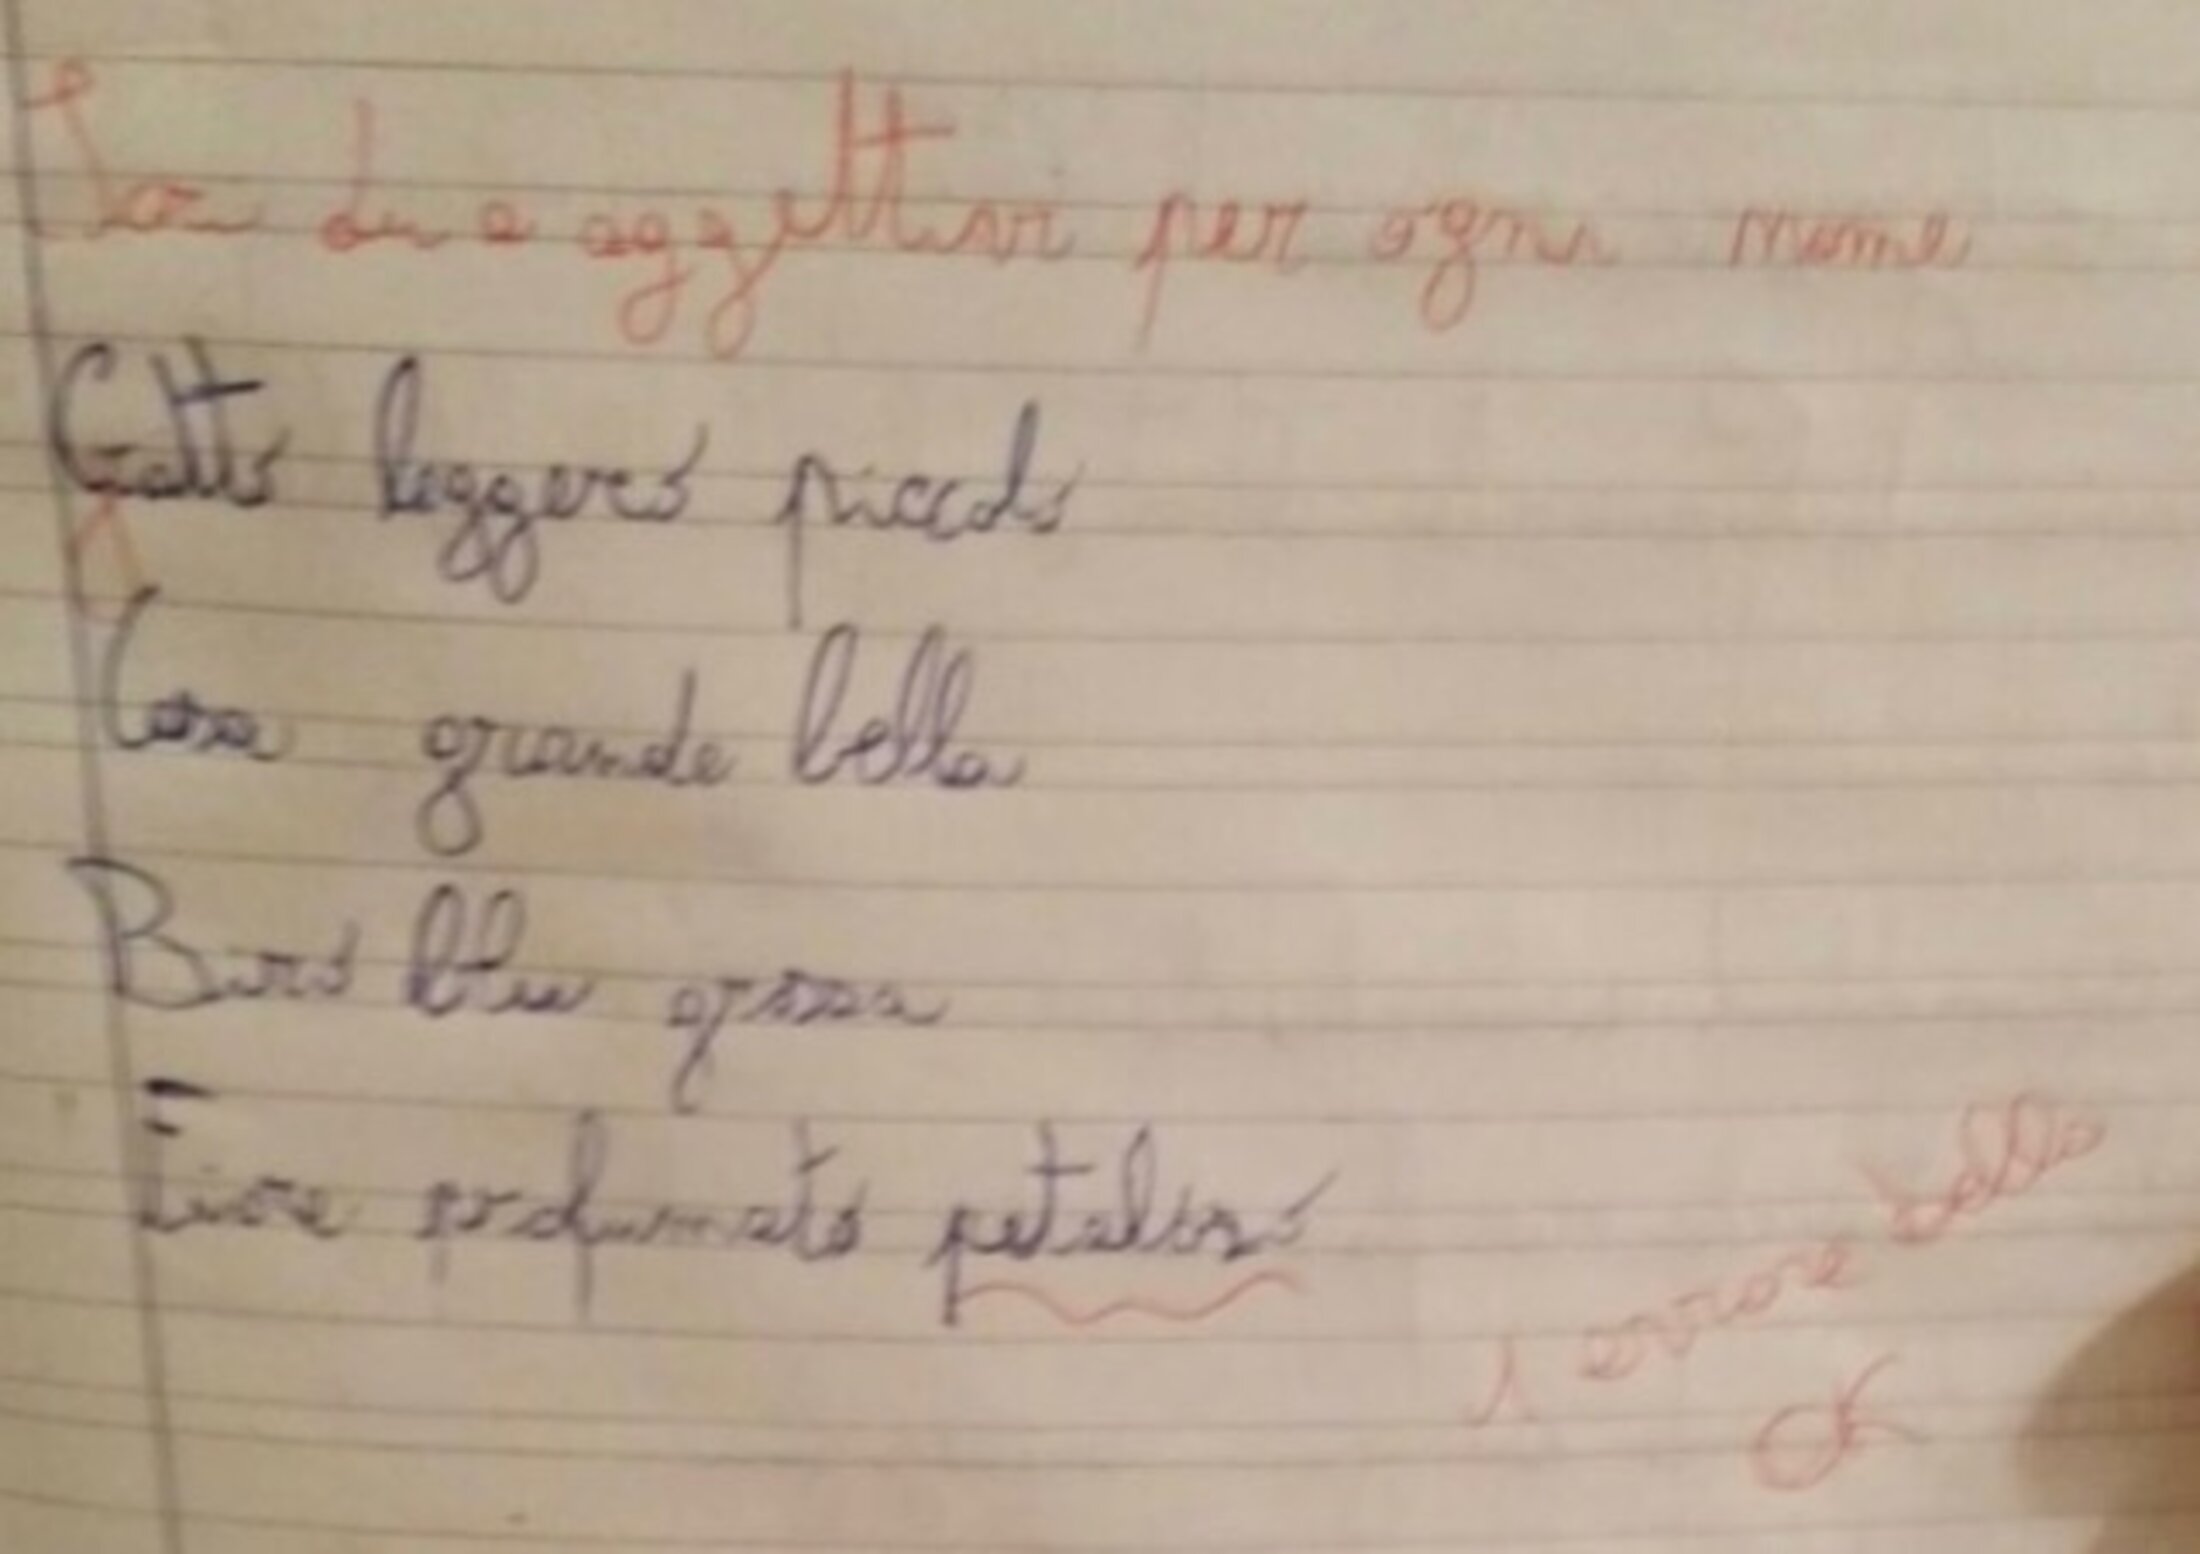 due aggettivi per ogni nome
Gatto leggero piccolo
Casa grande bella
Biro blu grossa
Fiore profumato petaloso
1 errore bello